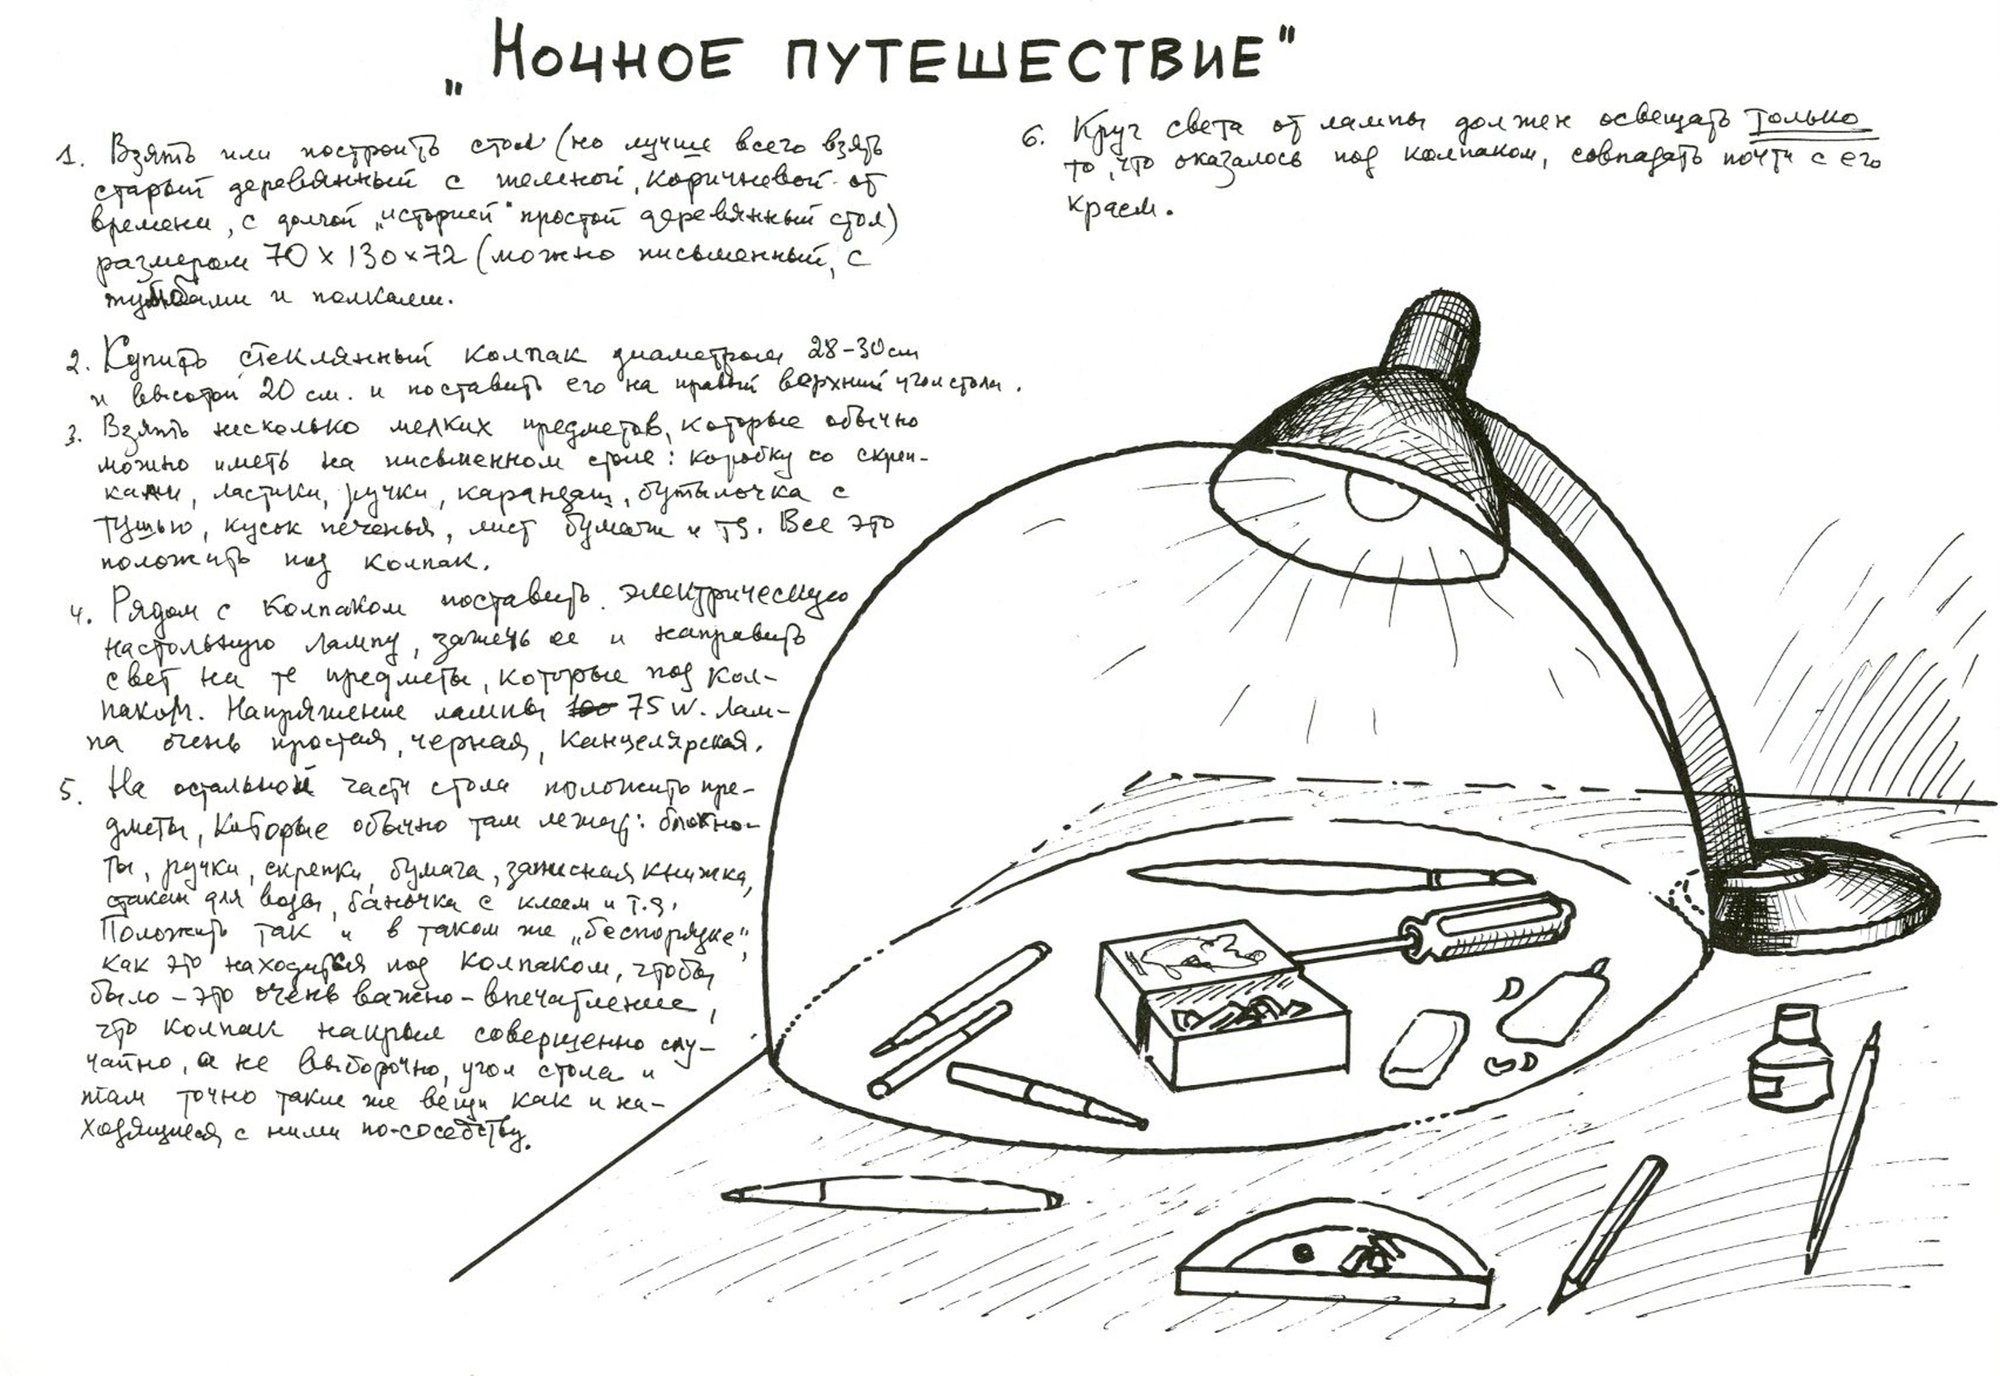 „Ночное путешествие"
1. Взять или построить стол (но лучше всего взять
старый деревянный с темной, коричневой от
времени, с долгой „историей" простой деревянный стол)
размером 70 х 130 х 72 (можно письменный, с
тумбами и полками.
2. Купить стеклянный колпак диаметром 28-30 см
и высотой 20 см. и поставить его на правый верхний угол стола.
3. Взять несколько мелких предметов, которые обычно
можно иметь на письменном столе: коробку со скреп-
ками, ластики, ручки, карандаш, бутылочка с
тушью, кусок печенья, лист бумаги и тд. Все это
положить под колпак.
4. Рядом с колпаком поставить электрическую
настольную лампу, зажечь ее и направить
свет на те предметы, которые под кол-
паком. Напряжение лампы 100 75 W. Лам-
па очень простая, черная, канцелярская.
5. На остальной части стола положить пре-
дметы, которые обычно там лежат: блокно-
ты, ручки, скрепки, бумага, записная книжка,
стакан для воды, баночка с клеем и т.д.
Положить так и в таком же „беспорядке",
как это находится под колпаком, чтобы
было - это очень важно - впечатление,
что колпак накрыл совершенно слу-
чайно, а не выборочно, угол стола и
там точно такие же вещи как и на-
ходящиеся с ними по-соседству.
6. Круг света от лампы должен освещать только
то, что оказалось под колпаком, совпадать почти с его
краем.